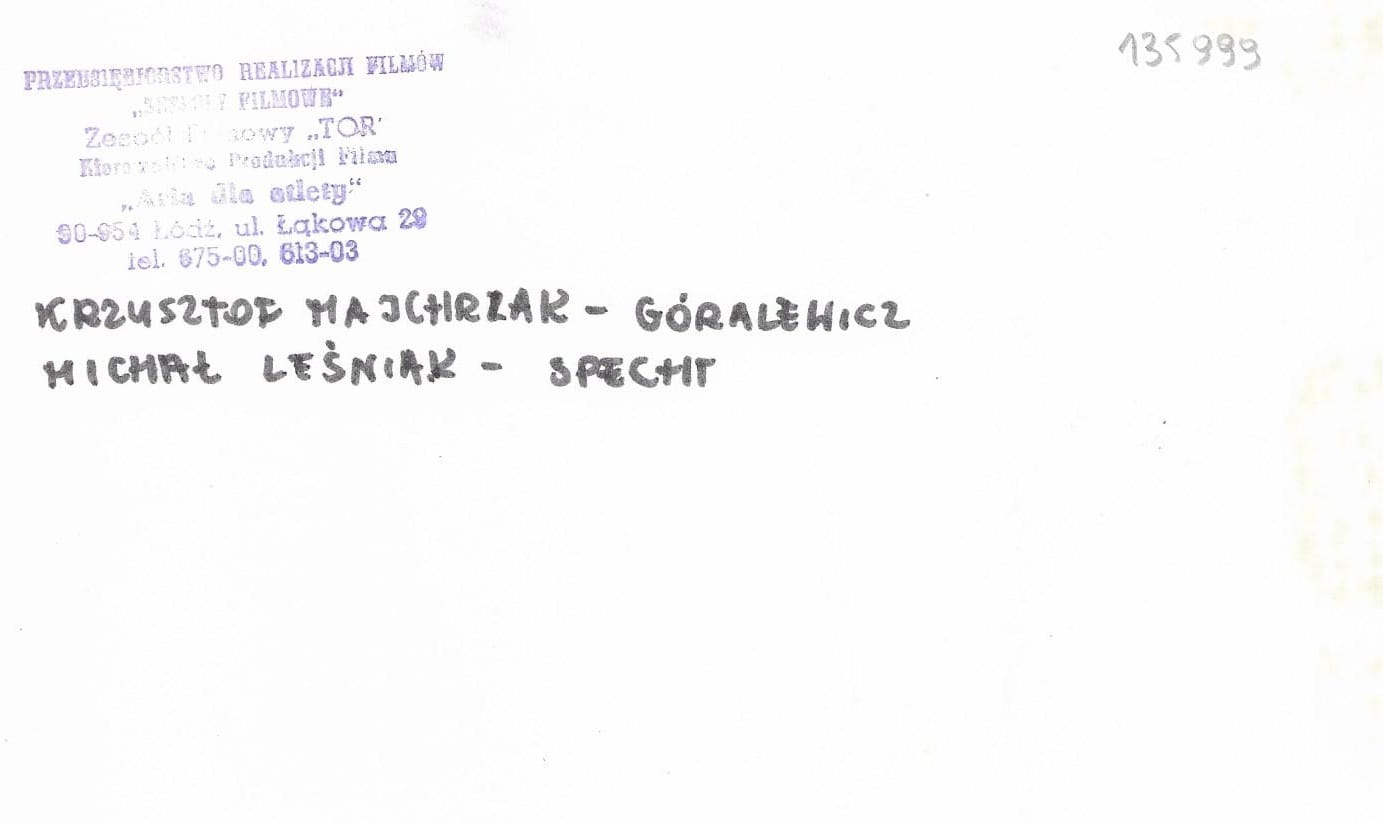 135999
PRZEDSIĘBIORSTWO REALIZACJI FILMÓW
„ZESPOŁY FILMOWE“
Zespół Filmowy „TOR"
Kierownictwo Produkcji Filmu
„Aria dla atlety“
90-954 Łódź, ul. Łąkowa 29
tel. 675-00, 613-03
KRZYSZTOF MAJCHRZAK - GÓRALEWICZ
MICHAŁ LEŚNIAK - SPECHT